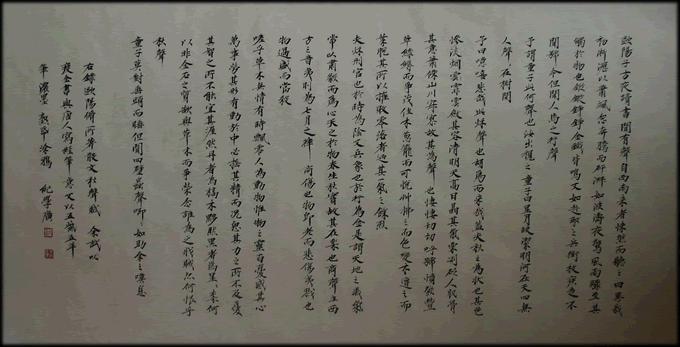 歐陽子方夜讀書聞有聲自西南來者悚然而聽之曰異哉
初淅瀝以蕭颯忽奔騰而砰湃如波濤夜驚風雨驟至其
觸於物也鏦鏦錚錚金鐵皆鳴又如赴敵之兵銜枚疾走不
聞號令但聞人馬之行聲
予謂童子此何聲也汝出視之童子曰星月皎潔明河在天四無
人聲聲在樹間
予曰噫嘻悲哉此秋聲也胡為而來哉蓋夫秋之為狀也其色
慘淡烟霏雲斂其容清明天高日晶其氣慄冽砭人肌骨
其意蕭條山川寂寥故其為聲也淒淒切切呼號憤發豐
草綠縟而爭茂佳木葱蘢而可悅草拂之而色變木遭之而
葉脫其所以摧敗零落者迺其一氣之餘烈
夫秋刑官也於時為陰又兵象也於行為金是謂天地之義氣
常以肅殺而為心天之於物春生秋實故其在樂也商聲主西
方之音夷則為七月之律商傷也物既老而悲傷夷戮也
物過盛而當殺
嗟乎草木無情有時飄零人為動物惟物之靈百憂感其心
萬事勞其形有動於中必搖其精而況思其力之所不及憂
其智之所不能宜其渥然丹者為槁木黟然黑者為星星奈何
以非金石之質欲與草木而爭榮念誰為之戕賊亦何恨乎
秋聲
童子莫對垂頭而睡但聞四壁蟲聲唧唧如助余之嘆息
右錄歐陽脩所著散文秋聲賦 余試以
瘦金書與唐人寫經筆意 又以
筆 濃墨 塗鴉 紀學廣